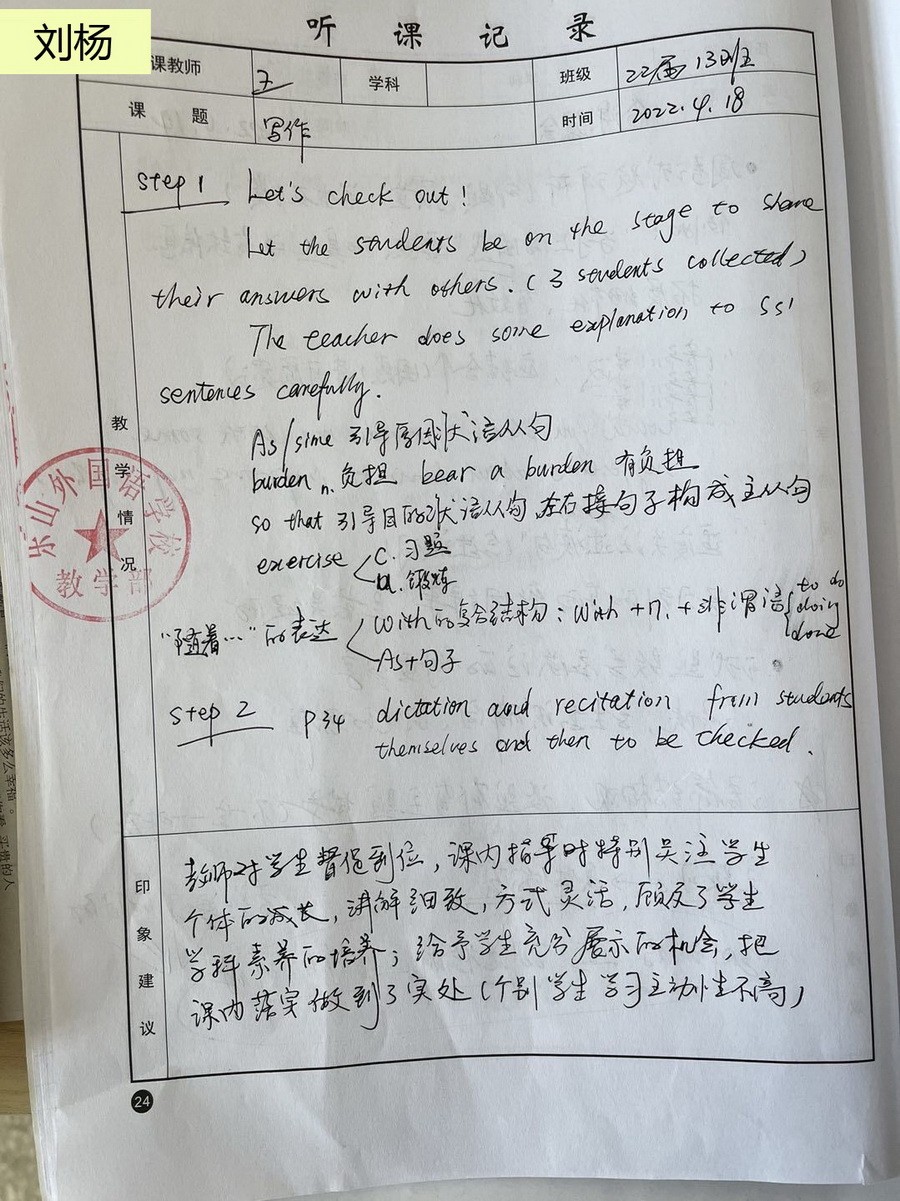 刘杨
听课记录
课教师 学科 班级 22届13班
课题 写作 时间 2022.4.18
教学情况
step 1 Let's check out!
Let the students be on the stage to share
their answers with others. (3 students collected)
The teacher does some explanation to SS'
sentences carefully.
As/sime 引导原因状语从句
burden n. 负担 bear a burden 有负担
so that 引导目的状语从句, 左右接句子构成主从句
exercise C. 习题
U. 锻炼
"随着…"的表达 With的复合结构: With + n. + 非谓语 to do doing done
As+句子
step 2 P34 dictation and recitation from students
themselves and then to be checked.
乐山外国语学校
教学部
印象建议
教师对学生督促到位, 课内指导时特别关注学生
个体的成长, 讲解细致, 方式灵活, 顾及了学生
学科素养的培养; 给予学生充分展示的机会, 把
课内落实做到了实处 (个别学生学习主动性不高)
24